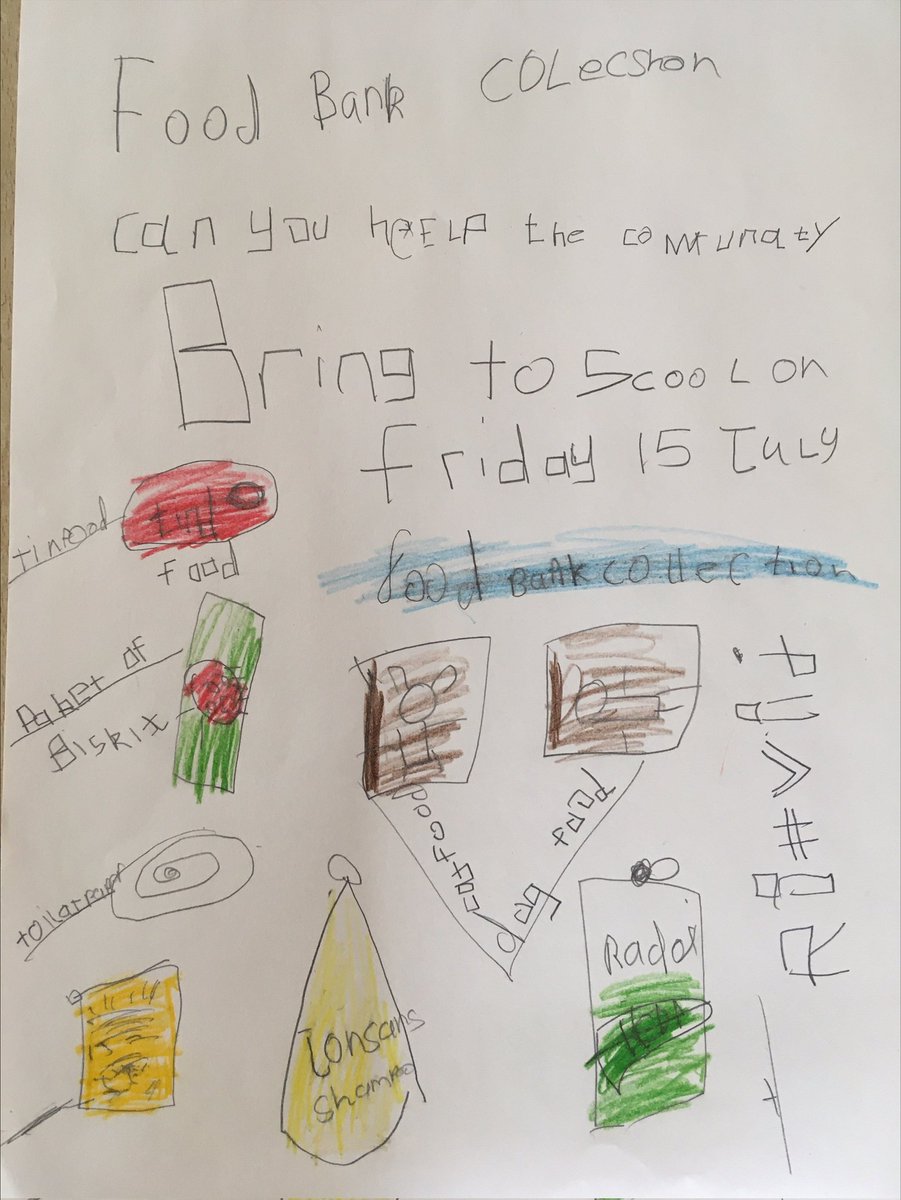 Food Bank COLecshon
can you hELP the comunaty
Bring to Scool on
friday 15 July
tinfood
tind
food
food bank collection
Paket of
Biskit
cat food
dog food
toilarpapr
Radox
Jonsans
shampoo